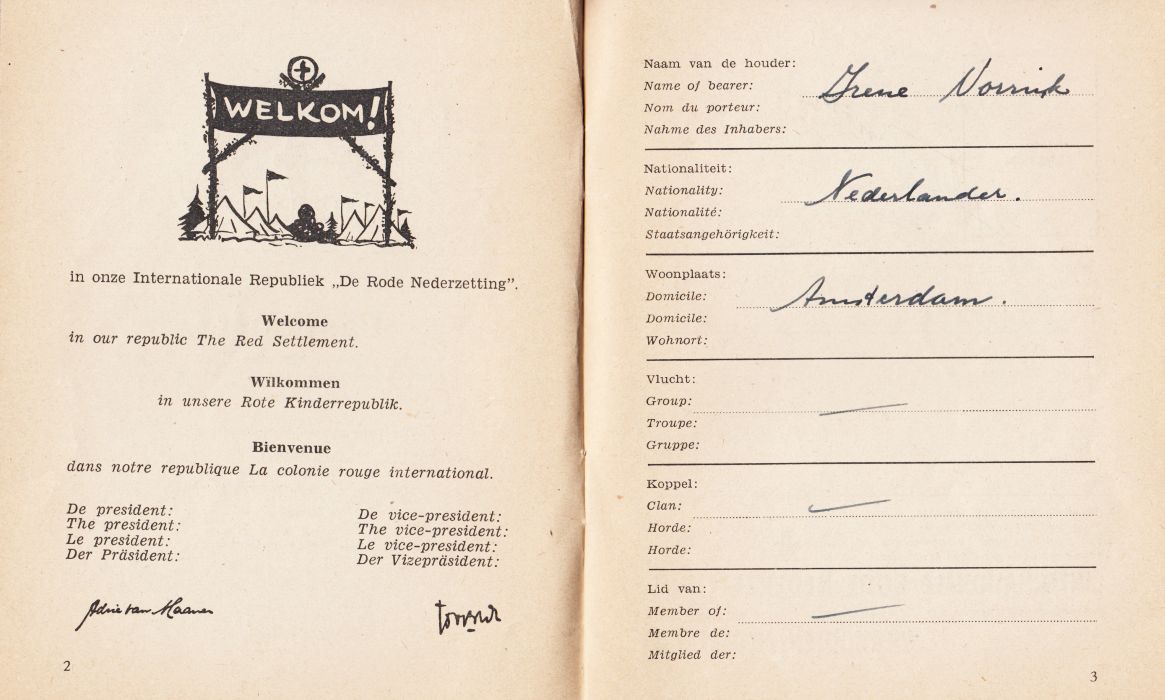 WELKOM!
in onze Internationale Republiek „De Rode Nederzetting”.
Welcome
in our republic The Red Settlement.
Wilkommen
in unsere Rote Kinderrepublik.
Bienvenue
dans notre republique La colonie rouge international.
De president:
The president:
Le president:
Der Präsident:
De vice-president:
The vice-president:
Le vice-president:
Der Vizepräsident:
Adrie van Maanen
2
Naam van de houder:
Name of bearer:
Nom du porteur:
Nahme des Inhabers:
Irene Vorrink
Nationaliteit:
Nationality:
Nationalité:
Staatsangehörigkeit:
Nederlander.
Woonplaats:
Domicile:
Domicile:
Wohnort:
Amsterdam.
Vlucht:
Group:
Troupe:
Gruppe:
Koppel:
Clan:
Horde:
Horde:
Lid van:
Member of:
Membre de:
Mitglied der:
3